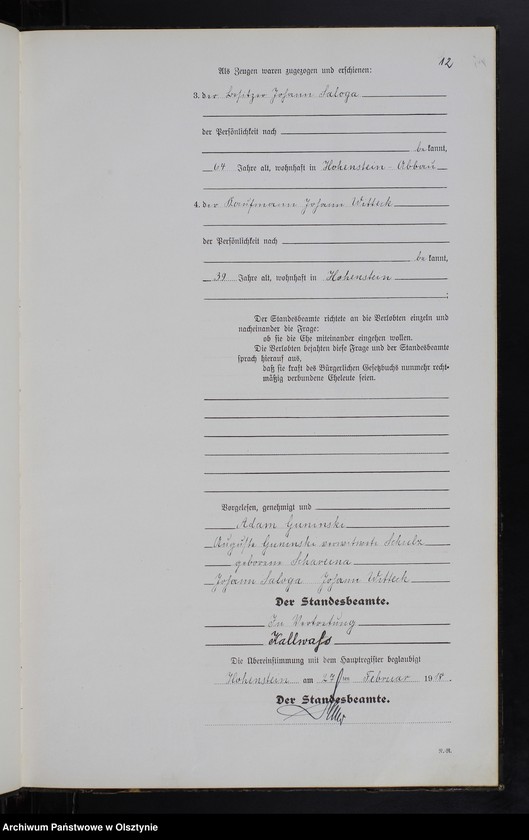 12
Als Zeugen waren zugezogen und erschienen:
3. der Besitzer Johann Saloga
der Persönlichkeit nach
be kannt,
64 Jahre alt, wohnhaft in Hohenstein-Abbau
4. der Kaufmann Johann Witteck
der Persönlichkeit nach
be kannt,
39 Jahre alt, wohnhaft in Hohenstein
;
Der Standesbeamte richtete an die Verlobten einzeln und
nacheinander die Frage:
ob sie die Ehe miteinander eingehen wollen.
Die Verlobten bejahten diese Frage und der Standesbeamte
sprach hierauf aus,
daß sie kraft des Bürgerlichen Gesetzbuchs nunmehr recht-
mäßig verbundene Eheleute seien.
Vorgelesen, genehmigt und
Adam Guninski
Auguste Guninski verwitwete Schulz
geborene Schareina
Johann Saloga Johann Witteck
Der Standesbeamte.
In Vertretung
Kallwass
Die Übereinstimmung mit dem Hauptregister beglaubigt
Hohenstein am 27ten Februar 1918.
Der Standesbeamte.
Archiwum Państwowe w Olsztynie